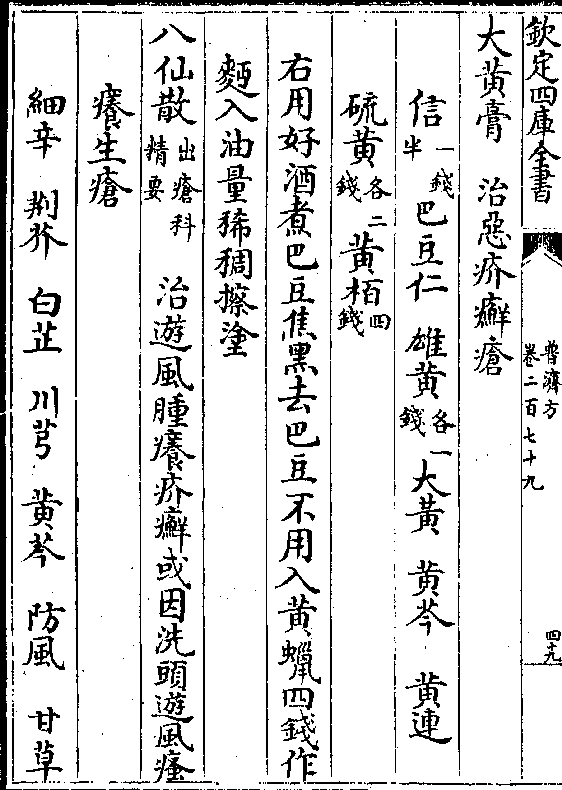 欽定四庫全書
普濟方
卷二百七十九
四十九
大黄膏　治惡疥癬瘡
信一錢半　巴豆仁　雄黄各一錢　大黄　黄芩　黄連
硫黄各二錢　黄栢四錢
右用好酒煮巴豆焦黑去巴豆不用入黄蠟四錢作
麪入油量稀稠擦塗
八仙散出瘡科精要　治遊風腫癢疥癬或因洗頭遊風瘙
癢生瘡
細辛　荆芥　白芷　川芎　黄芩　防風　甘草